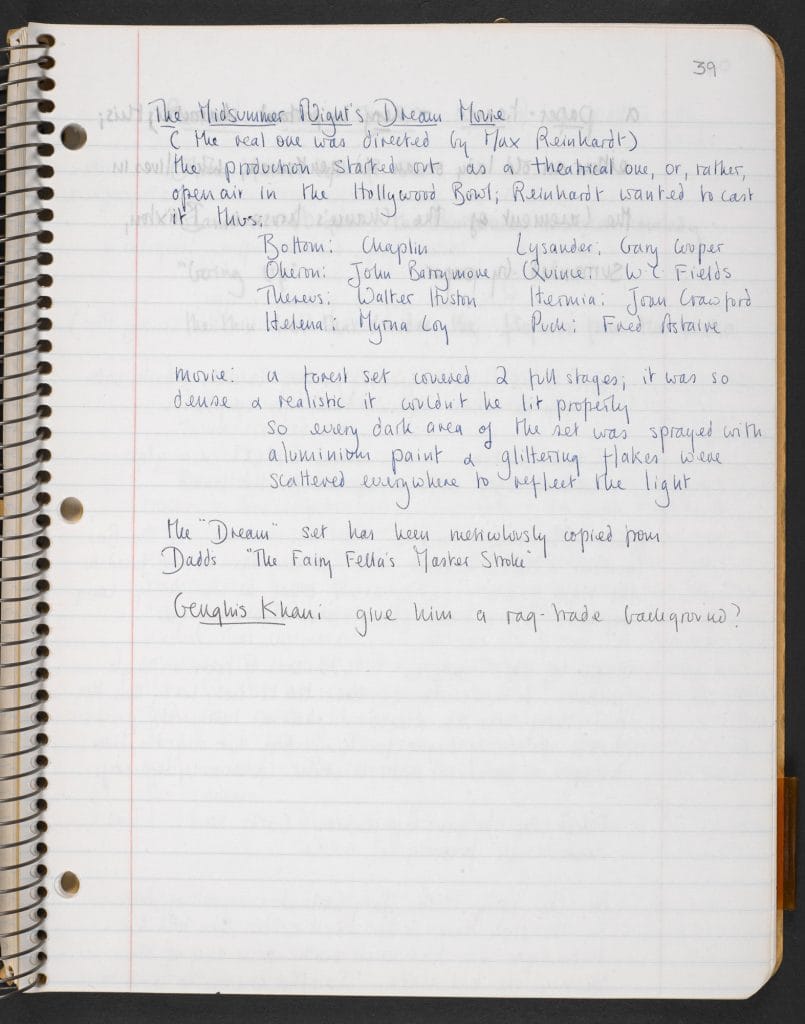 39
The Midsummer Night's Dream Movie
( the real one was directed by Max Reinhardt)
the production started out as a theatrical one, or, rather,
open air in the Hollywood Bowl; Reinhardt wanted to cast
it thus:
Bottom: Chaplin Lysander: Gary Cooper
Oberon: John Barrymore Quince: W C Fields
Theseus: Walter Huston Hermia: Joan Crawford
Helena: Myrna Loy Puck: Fred Astaire
movie: a forest set covered 2 full stages; it was so
dense & realistic it couldn't be lit properly
so every dark area of the set was sprayed with
aluminium paint & glittering flakes were
scattered everywhere to reflect the light
the "Dream" set has been meticulously copied from
Dadd's "The Fairy Fella's Master Stroke"
Genghis Khan: give him a rag-trade background?